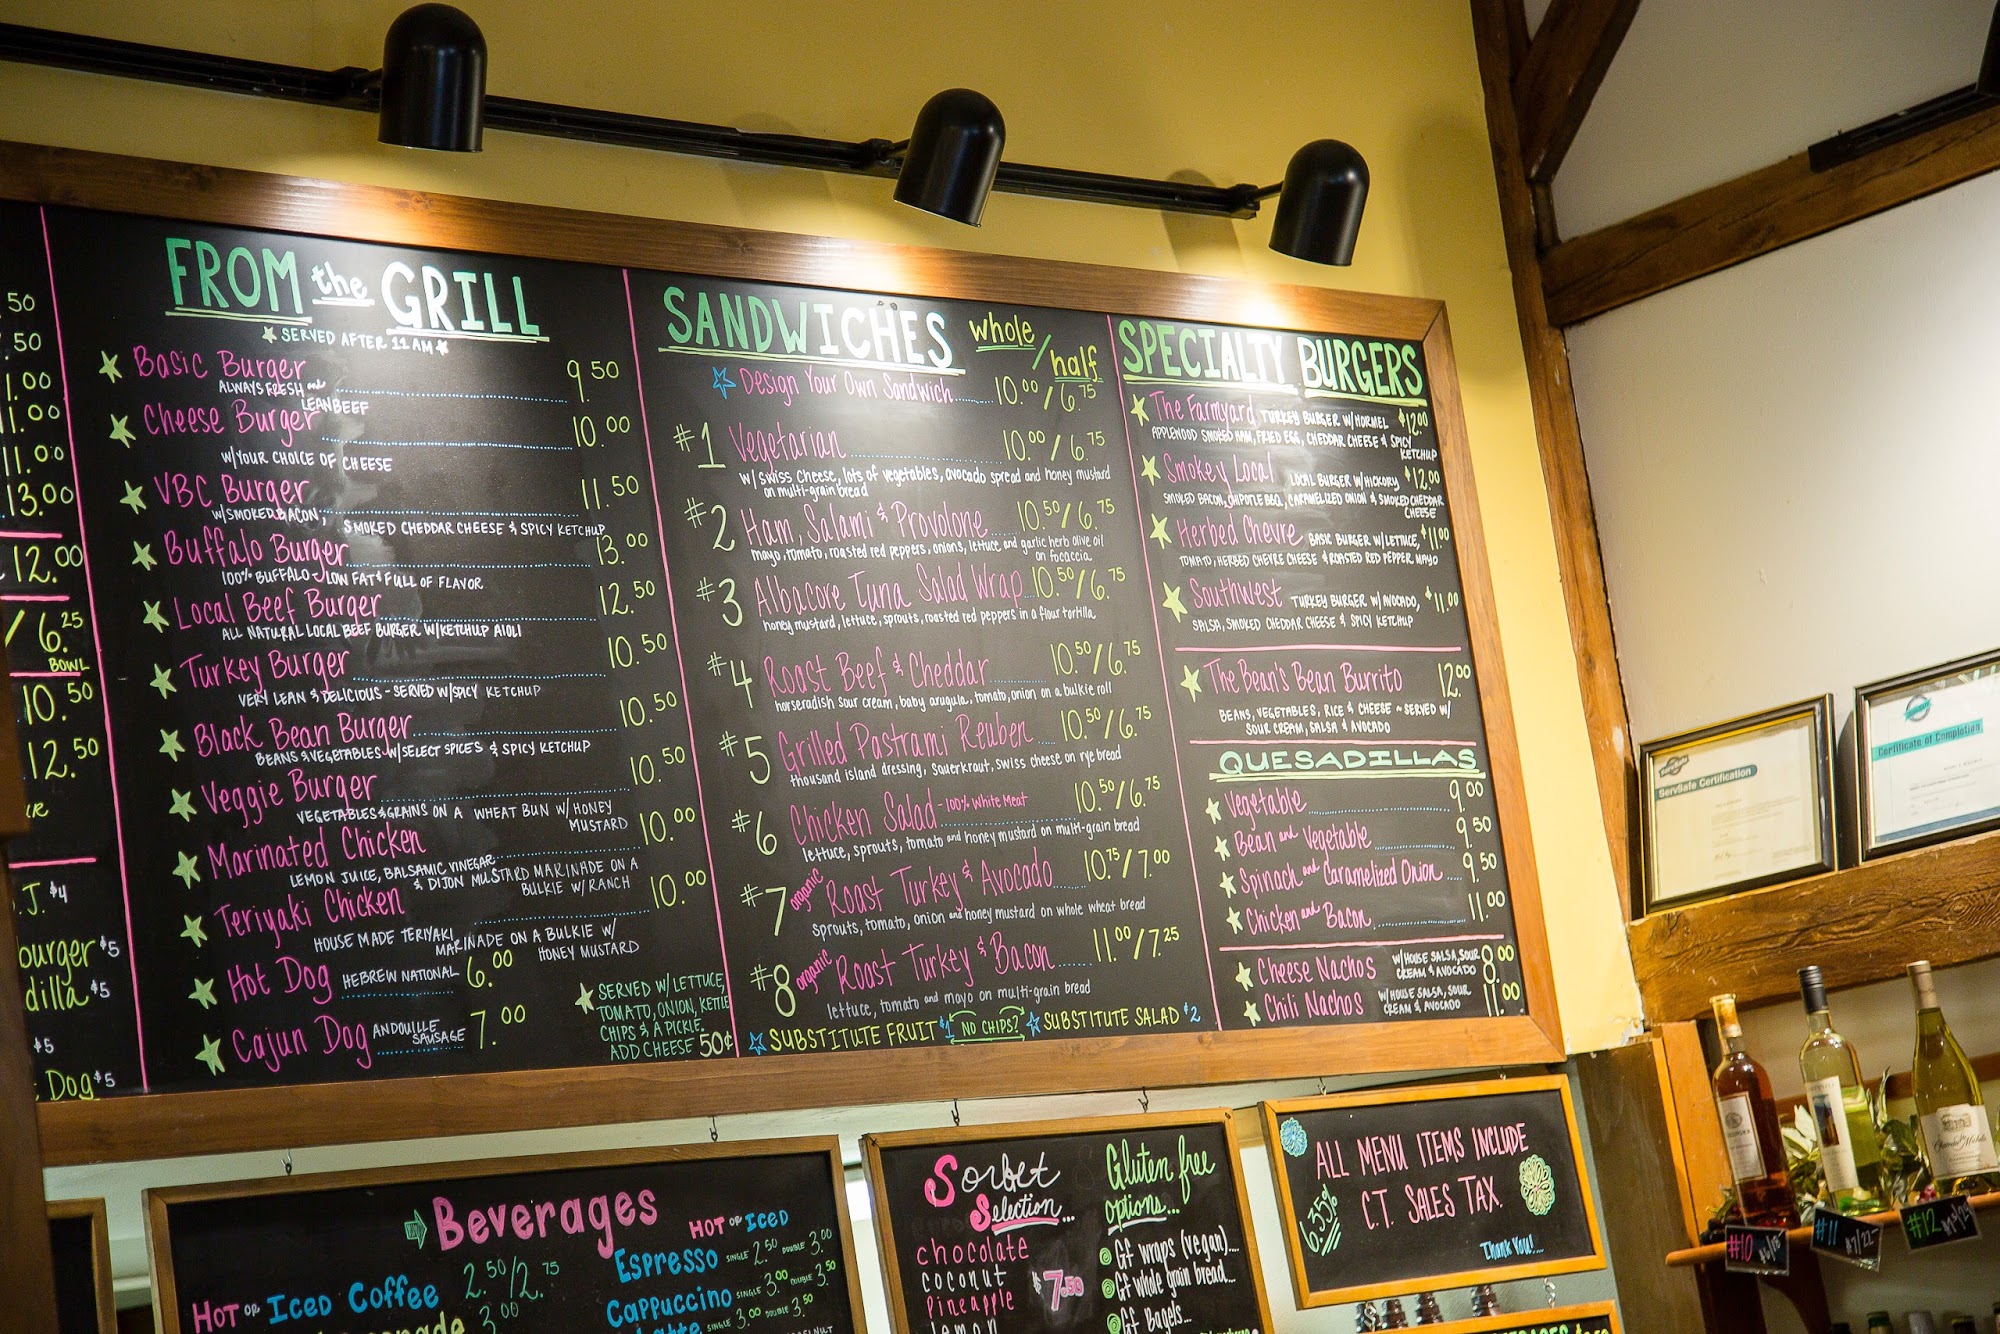 50
.50
1.00
1.00
11.00
13.00
12.00
/ 6.25
BOWL
10.50
12.50
.J. $4
burger $5
dilla $5
$5
Dog $5
FROM the GRILL
SERVED AFTER 11 AM
Basic Burger 9.50
ALWAYS FRESH and
LEAN BEEF
Cheese Burger 10.00
W/YOUR CHOICE OF CHEESE
VBC Burger 11.50
W/SMOKED BACON, SMOKED CHEDDAR CHEESE & SPICY KETCHUP
Buffalo Burger 13.00
100% BUFFALO - LOW FAT & FULL OF FLAVOR
Local Beef Burger 12.50
ALL NATURAL LOCAL BEEF BURGER W/KETCHUP AIOLI
Turkey Burger 10.50
VERY LEAN & DELICIOUS - SERVED W/SPICY KETCHUP
Black Bean Burger 10.50
BEANS & VEGETABLES W/SELECT SPICES & SPICY KETCHUP
Veggie Burger 10.50
VEGETABLES & GRAINS ON A WHEAT BUN W/ HONEY
MUSTARD
Marinated Chicken 10.00
LEMON JUICE, BALSAMIC VINEGAR
& DIJON MUSTARD MARINADE ON A
BULKIE W/ RANCH
Teriyaki Chicken 10.00
HOUSE MADE TERIYAKI
MARINADE ON A BULKIE W/
HONEY MUSTARD
Hot Dog HEBREW NATIONAL 6.00
Cajun Dog ANDOUILLE
SAUSAGE 7.00
SERVED W/ LETTUCE,
TOMATO, ONION, KETTLE
CHIPS & A PICKLE.
ADD CHEESE 50¢
SANDWICHES whole / half
Design Your Own Sandwich 10.00 / 6.75
#1 Vegetarian 10.00 / 6.75
w/ Swiss Cheese, lots of vegetables, avocado spread and honey mustard
on multi-grain bread
#2 Ham, Salami & Provolone 10.50 / 6.75
mayo, tomato, roasted red peppers, onions, lettuce and garlic herb olive oil
on focaccia
#3 Albacore Tuna Salad Wrap 10.50 / 6.75
honey mustard, lettuce, sprouts, roasted red peppers in a flour tortilla
#4 Roast Beef & Cheddar 10.50 / 6.75
horseradish sour cream, baby arugula, tomato, onion on a bulkie roll
#5 Grilled Pastrami Reuben 10.50 / 6.75
thousand island dressing, sauerkraut, swiss cheese on rye bread
#6 Chicken Salad - 100% White Meat 10.50 / 6.75
lettuce, sprouts, tomato and honey mustard on multi-grain bread
#7 organic Roast Turkey & Avocado 10.75 / 7.00
Sprouts, tomato, onion and honey mustard on whole wheat bread
#8 organic Roast Turkey & Bacon 11.00 / 7.25
lettuce, tomato and mayo on multi-grain bread
SUBSTITUTE FRUIT $1 NO CHIPS? SUBSTITUTE SALAD $2
SPECIALTY BURGERS
The Farmyard TURKEY BURGER W/HORMEL $12.00
APPLEWOOD SMOKED HAM, FRIED EGG, CHEDDAR CHEESE & SPICY
KETCHUP
Smokey Local LOCAL BURGER W/HICKORY $12.00
SMOKED BACON, CHIPOTLE BBQ, CARAMELIZED ONION & SMOKED CHEDDAR
CHEESE
Herbed Chevre BASIC BURGER W/LETTUCE, $11.00
TOMATO, HERBED CHEVRE CHEESE & ROASTED RED PEPPER MAYO
Southwest TURKEY BURGER W/AVOCADO, $11.00
SALSA, SMOKED CHEDDAR CHEESE & SPICY KETCHUP
The Bean's Bean Burrito 12.00
BEANS, VEGETABLES, RICE & CHEESE ~ SERVED W/
SOUR CREAM, SALSA & AVOCADO
QUESADILLAS
Vegetable 9.00
Bean and Vegetable 9.50
Spinach and Caramelized Onion 9.50
Chicken and Bacon 11.00
Cheese Nachos W/HOUSE SALSA, SOUR
CREAM & AVOCADO 8.00
Chili Nachos W/HOUSE SALSA, SOUR
CREAM & AVOCADO 11.00
Beverages
HOT or ICED
HOT or ICED COFFEE 2.50/2.75
3.00
Espresso SINGLE 2.50 DOUBLE 3.00
Cappuccino SINGLE 3.00 DOUBLE 3.50
SINGLE 3.00 DOUBLE 3.50
Sorbet
Selection...
chocolate
coconut
pineapple
lemon
$7.50
Gluten free
options...
Gf wraps (vegan)....
Gf whole grain bread...
Gf Bagels...
ALL MENU ITEMS INCLUDE
6.35% C.T. SALES TAX.
Thank You!...
ServSafe Certification
Certificate of Completion
#10
#11 $7/22
#12